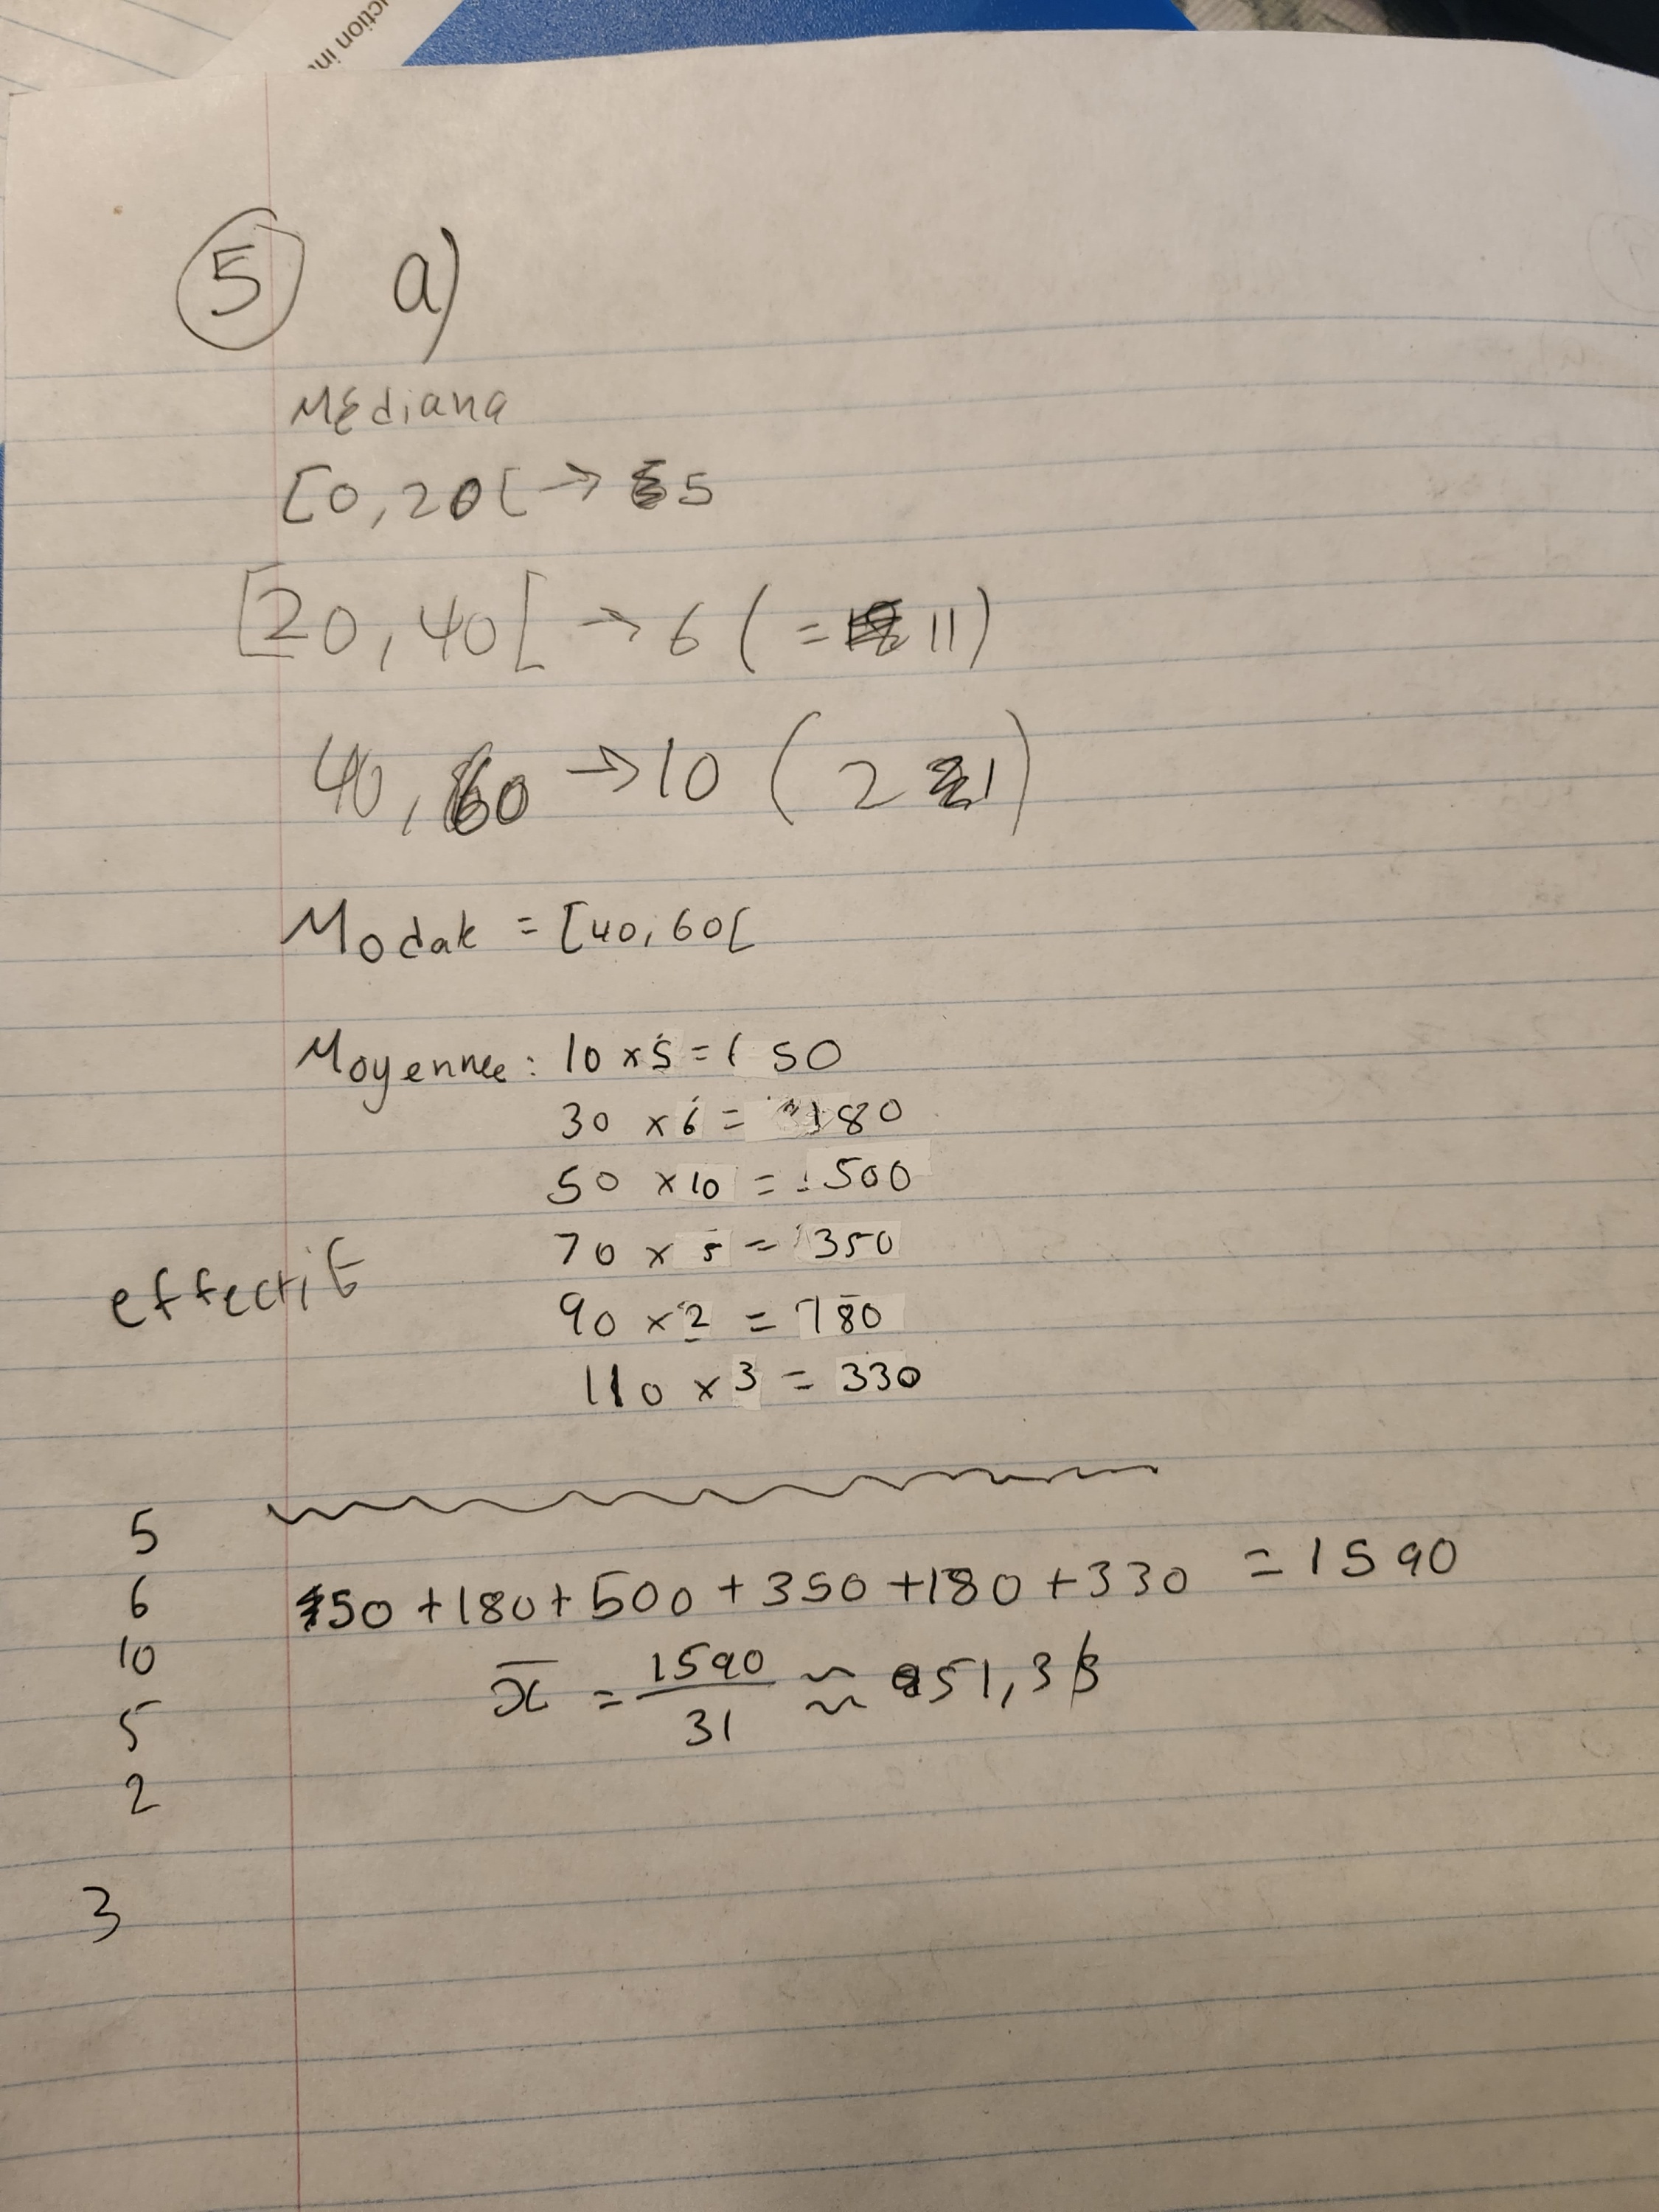 ction in
5 a)
MEdiana
[0,20[ → 5
[20,40[ → 6 (= 11)
40,60 → 10 (21)
Modak = [40,60[
Moyenne: 10 x 5 = 50
30 x 6 = 180
50 x 10 = 500
70 x 5 = 350
effectif
90 x 2 = 180
110 x 3 = 330
5
6
50+180+500+350+180+330 = 1590
10
x̄ = 1590/31 ≈ 51,3
5
2
3